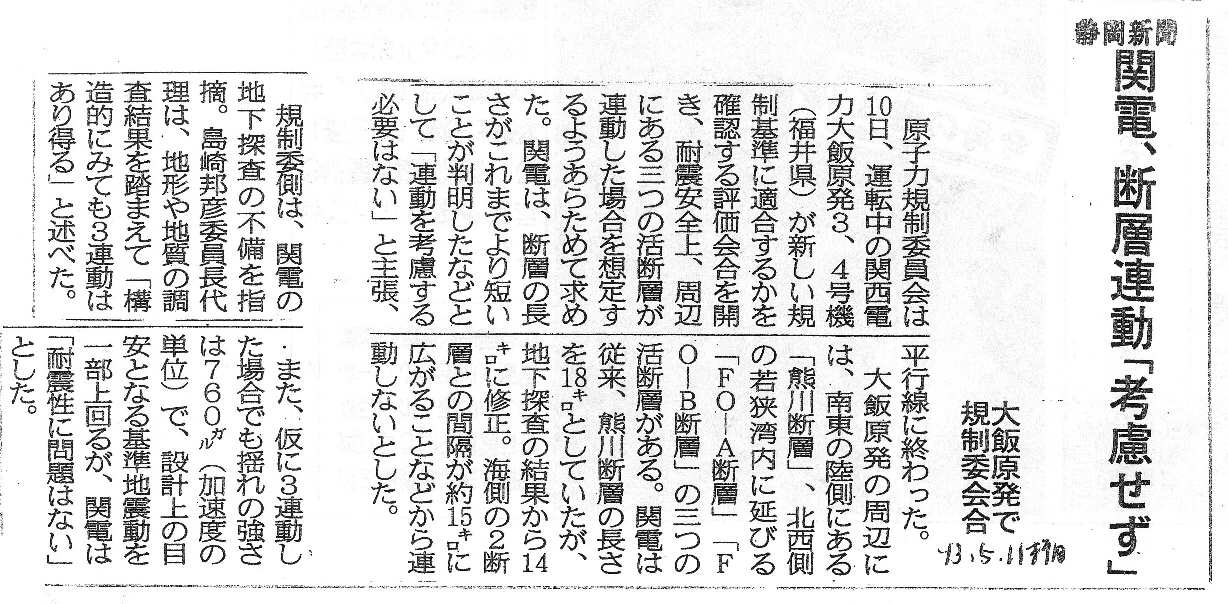 静岡新聞
関電、断層連動「考慮せず」
大飯原発で
規制委会合
'13.5.11朝刊
原子力規制委員会は
10日、運転中の関西電
力大飯原発3、4号機
（福井県）が新しい規
制基準に適合するかを
確認する評価会合を開
き、耐震安全上、周辺
にある三つの活断層が
連動した場合を想定す
るようあらためて求め
た。関電は、断層の長
さがこれまでより短い
ことが判明したなどと
して「連動を考慮する
必要はない」と主張、
平行線に終わった。
大飯原発の周辺に
は、南東の陸側にある
「熊川断層」、北西側
の若狭湾内に延びる
「FO－A断層」「F
O－B断層」の三つの
活断層がある。関電は
従来、熊川断層の長さ
を18㌔としていたが、
地下探査の結果から14
㌔に修正。海側の2断
層との間隔が約15㌔に
広がることなどから連
動しないとした。
規制委側は、関電の
地下探査の不備を指
摘。島崎邦彦委員長代
理は、地形や地質の調
査結果を踏まえて「構
造的にみても3連動は
あり得る」と述べた。
また、仮に3連動し
た場合でも揺れの強さ
は760㌘（加速度の
単位）で、設計上の目
安となる基準地震動を
一部上回るが、関電は
「耐震性に問題はない」
とした。